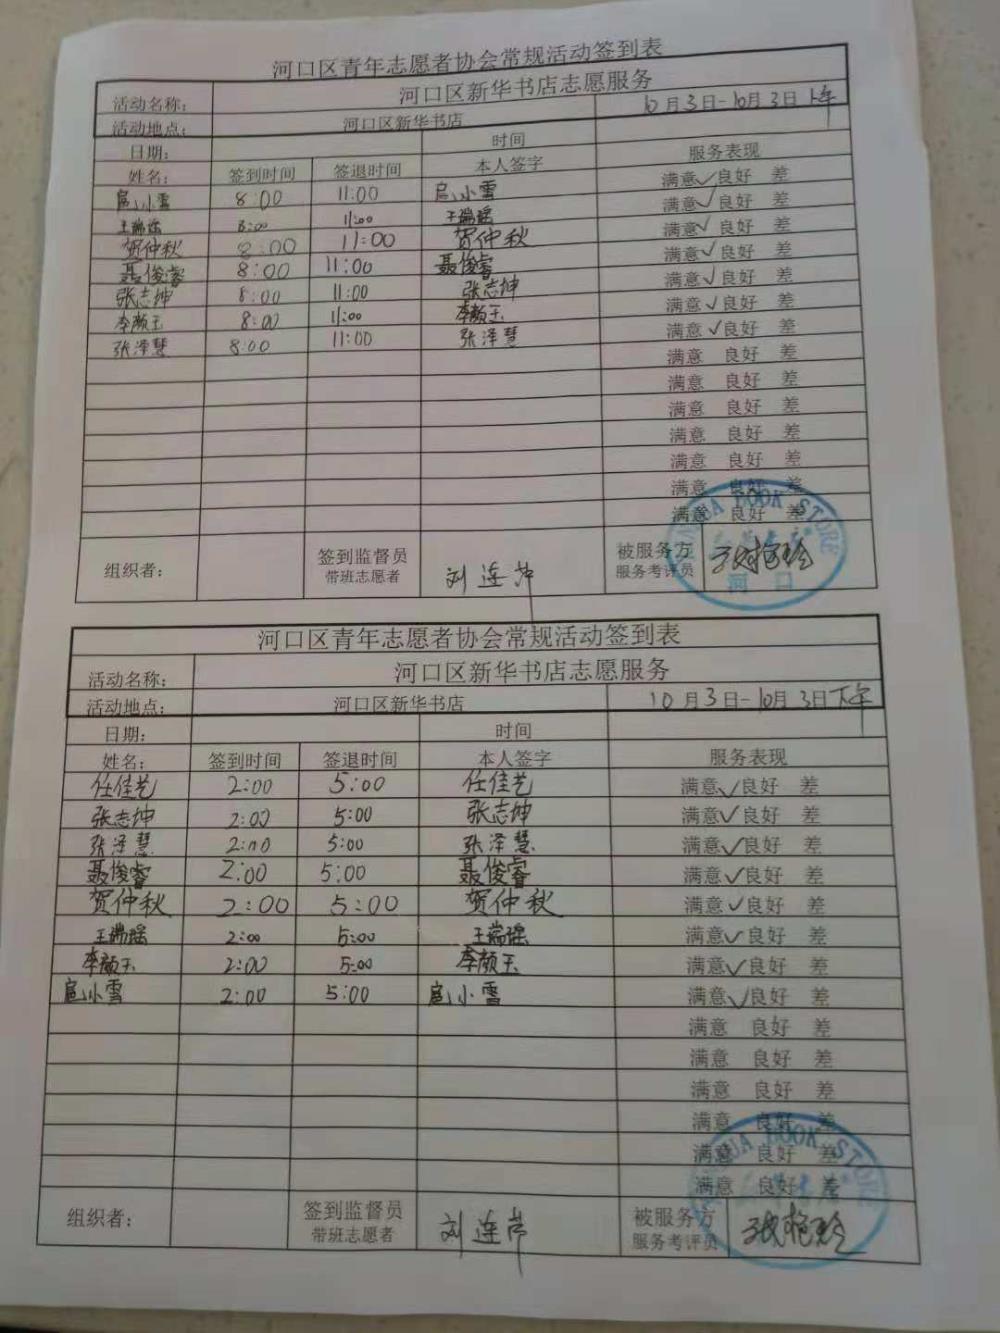 河口区青年志愿者协会常规活动签到表
活动名称： 河口区新华书店志愿服务
活动地点： 河口区新华书店 10月3日-10月3日上午
日期： 时间
姓名： 签到时间 签退时间 本人签字 服务表现
扈小雪 8:00 11:00 扈小雪 满意✓良好 差
王瑞瑶 8:00 11:00 王瑞瑶 满意✓良好 差
贺仲秋 8:00 11:00 贺仲秋 满意✓良好 差
聂俊睿 8:00 11:00 聂俊睿 满意✓良好 差
张志坤 8:00 11:00 张志坤 满意✓良好 差
李颜玉 8:00 11:00 李颜玉 满意✓良好 差
张泽慧 8:00 11:00 张泽慧 满意✓良好 差
满意 良好 差
满意 良好 差
满意 良好 差
满意 良好 差
满意 良好 差
满意 良好 差
满意 良好 差
组织者： 签到监督员 带班志愿者 刘连芹 被服务方 服务考评员
BOOK STORE
河口
河口区青年志愿者协会常规活动签到表
活动名称： 河口区新华书店志愿服务
活动地点： 河口区新华书店 10月3日-10月3日下午
日期： 时间
姓名： 签到时间 签退时间 本人签字 服务表现
任佳艺 2:00 5:00 任佳艺 满意✓良好 差
张志坤 2:00 5:00 张志坤 满意✓良好 差
张泽慧 2:00 5:00 张泽慧 满意✓良好 差
聂俊睿 2:00 5:00 聂俊睿 满意✓良好 差
贺仲秋 2:00 5:00 贺仲秋 满意✓良好 差
王瑞瑶 2:00 5:00 王瑞瑶 满意✓良好 差
李颜玉 2:00 5:00 李颜玉 满意✓良好 差
扈小雪 2:00 5:00 扈小雪 满意✓良好 差
满意 良好 差
满意 良好 差
满意 良好 差
满意 良好 差
满意 良好 差
满意 良好 差
组织者： 签到监督员 带班志愿者 刘连芹 被服务方 服务考评员
BOOK STORE